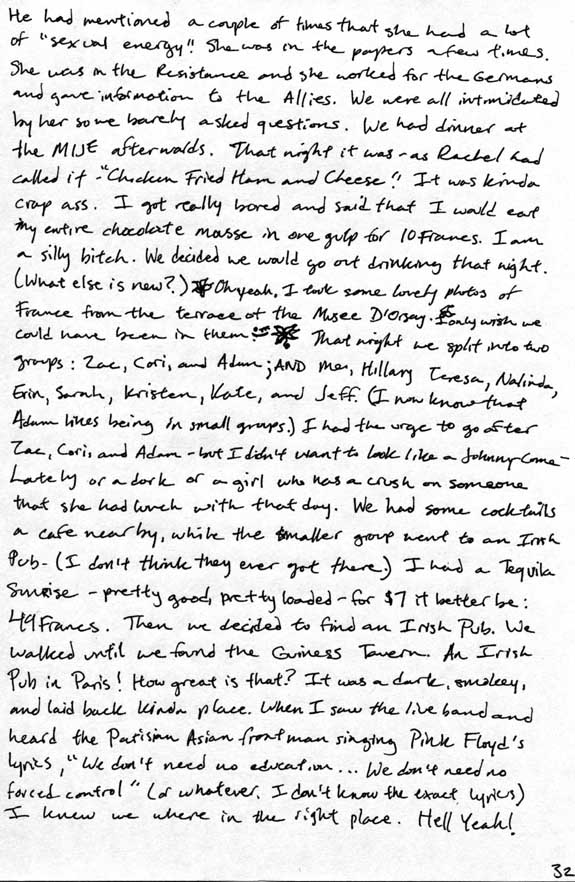 He had mentioned a couple of times that she had a lot
of "sexual energy"! She was in the papers a few times.
She was in the Resistance and she worked for the Germans
and gave information to the Allies. We were all intimidated
by her so we barely asked questions. We had dinner at
the MIJE afterwards. That night it was - as Rachel had
called it - "Chicken Fried Ham and Cheese"! It was kinda
crap ass. I got really bored and said that I would eat
my entire chocolate mousse in one gulp for 10 Francs. I am
a silly bitch. We decided we would go out drinking that night.
(What else is new?.) Oh yeah, I took some lovely photos of
France from the terrace of the Musee D'Orsay. I only wish we
could have been in them That night we split into two
groups: Zac, Cori, and Adam; AND me, Hillary Teresa, Nalinda,
Erin, Sarah, Kristen, Kate, and Jeff. (I now know that
Adam likes being in small groups.) I had the urge to go after
Zac, Cori, and Adam - but I didn't want to look like a Johnny-Come-
Lately or a dork or a girl who has a crush on someone
that she had lunch with that day. We had some cocktails
a cafe nearby, while the smaller group went to an Irish
Pub - (I don't think they ever got there.) I had a Tequila
Sunrise - pretty good, pretty loaded - for $7 it better be:
49 Francs. Then we decided to find an Irish Pub. We
walked until we found the Guiness Tavern. An Irish
Pub in Paris! How great is that? It was a dark, smokey,
and laid back kinda place. When I saw the live band and
heard the Parisian Asian frontman singing Pink Floyd's
lyrics, "We don't need no education... We don't need no
forced control" (or whatever. I don't know the exact lyrics)
I knew we where in the right place. Hell Yeah!
32